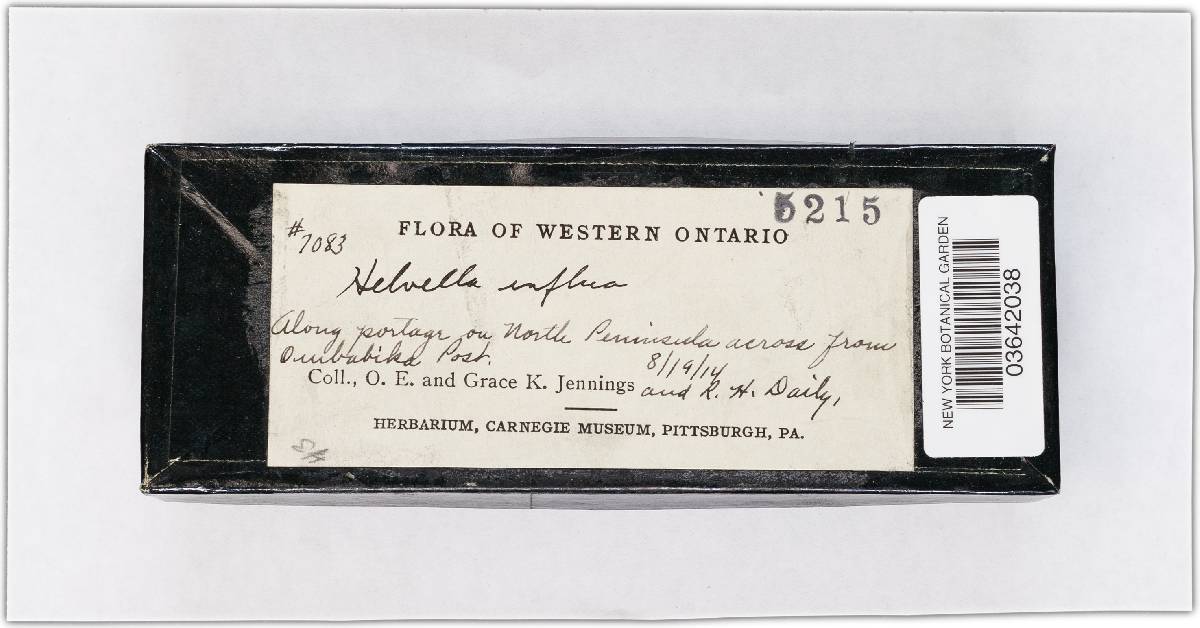 5215
#7083
FLORA OF WESTERN ONTARIO
Helvella
Along portage on North Peninsula across from
Ombabika Post.
8/19/14
Coll., O. E. and Grace K. Jennings and R. H. Daily,
HERBARIUM, CARNEGIE MUSEUM, PITTSBURGH, PA.
NEW YORK BOTANICAL GARDEN
03642038